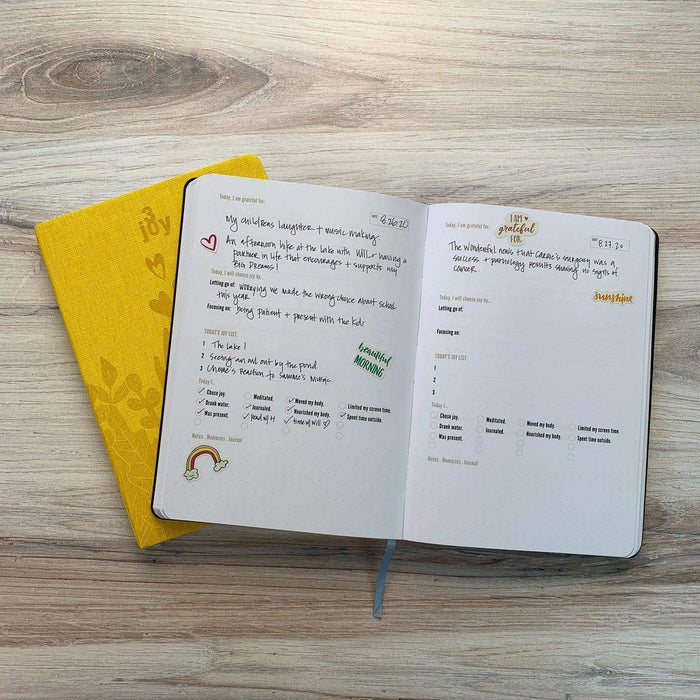 joy
Today, I am grateful for:
DATE 8.26.20
My childrens laughter + music making.
An afternoon hike at the lake with Will + having a
partner in life that encourages + supports my
BIG Dreams!
Today, I will choose joy by...
Letting go of: Worrying we made the wrong choice about school
this year.
Focusing on: being patient + present with the kids
TODAY'S JOY LIST:
1 The Lake!
2 Seeing an owl out by the pond.
3 Reaction to Music.
beautiful
MORNING
Today I...
Chose joy. Meditated. Moved my body. Limited my screen time.
Drank water. Journaled. Nourished my body. Spent time outside.
Was present. Read w/ H time w/ Will
Notes . Memories . Journal
Today, I am grateful for:
I AM
grateful
FOR
DATE 8.27.20
The Wonderful news that Carrie's surgery was a
success + pathology results showing no signs of
cancer.
Today, I will choose joy by...
sunshine
Letting go of:
Focusing on:
TODAY'S JOY LIST:
1
2
3
Today I...
Chose joy. Meditated. Moved my body. Limited my screen time.
Drank water. Journaled. Nourished my body. Spent time outside.
Was present.
Notes . Memories . Journal